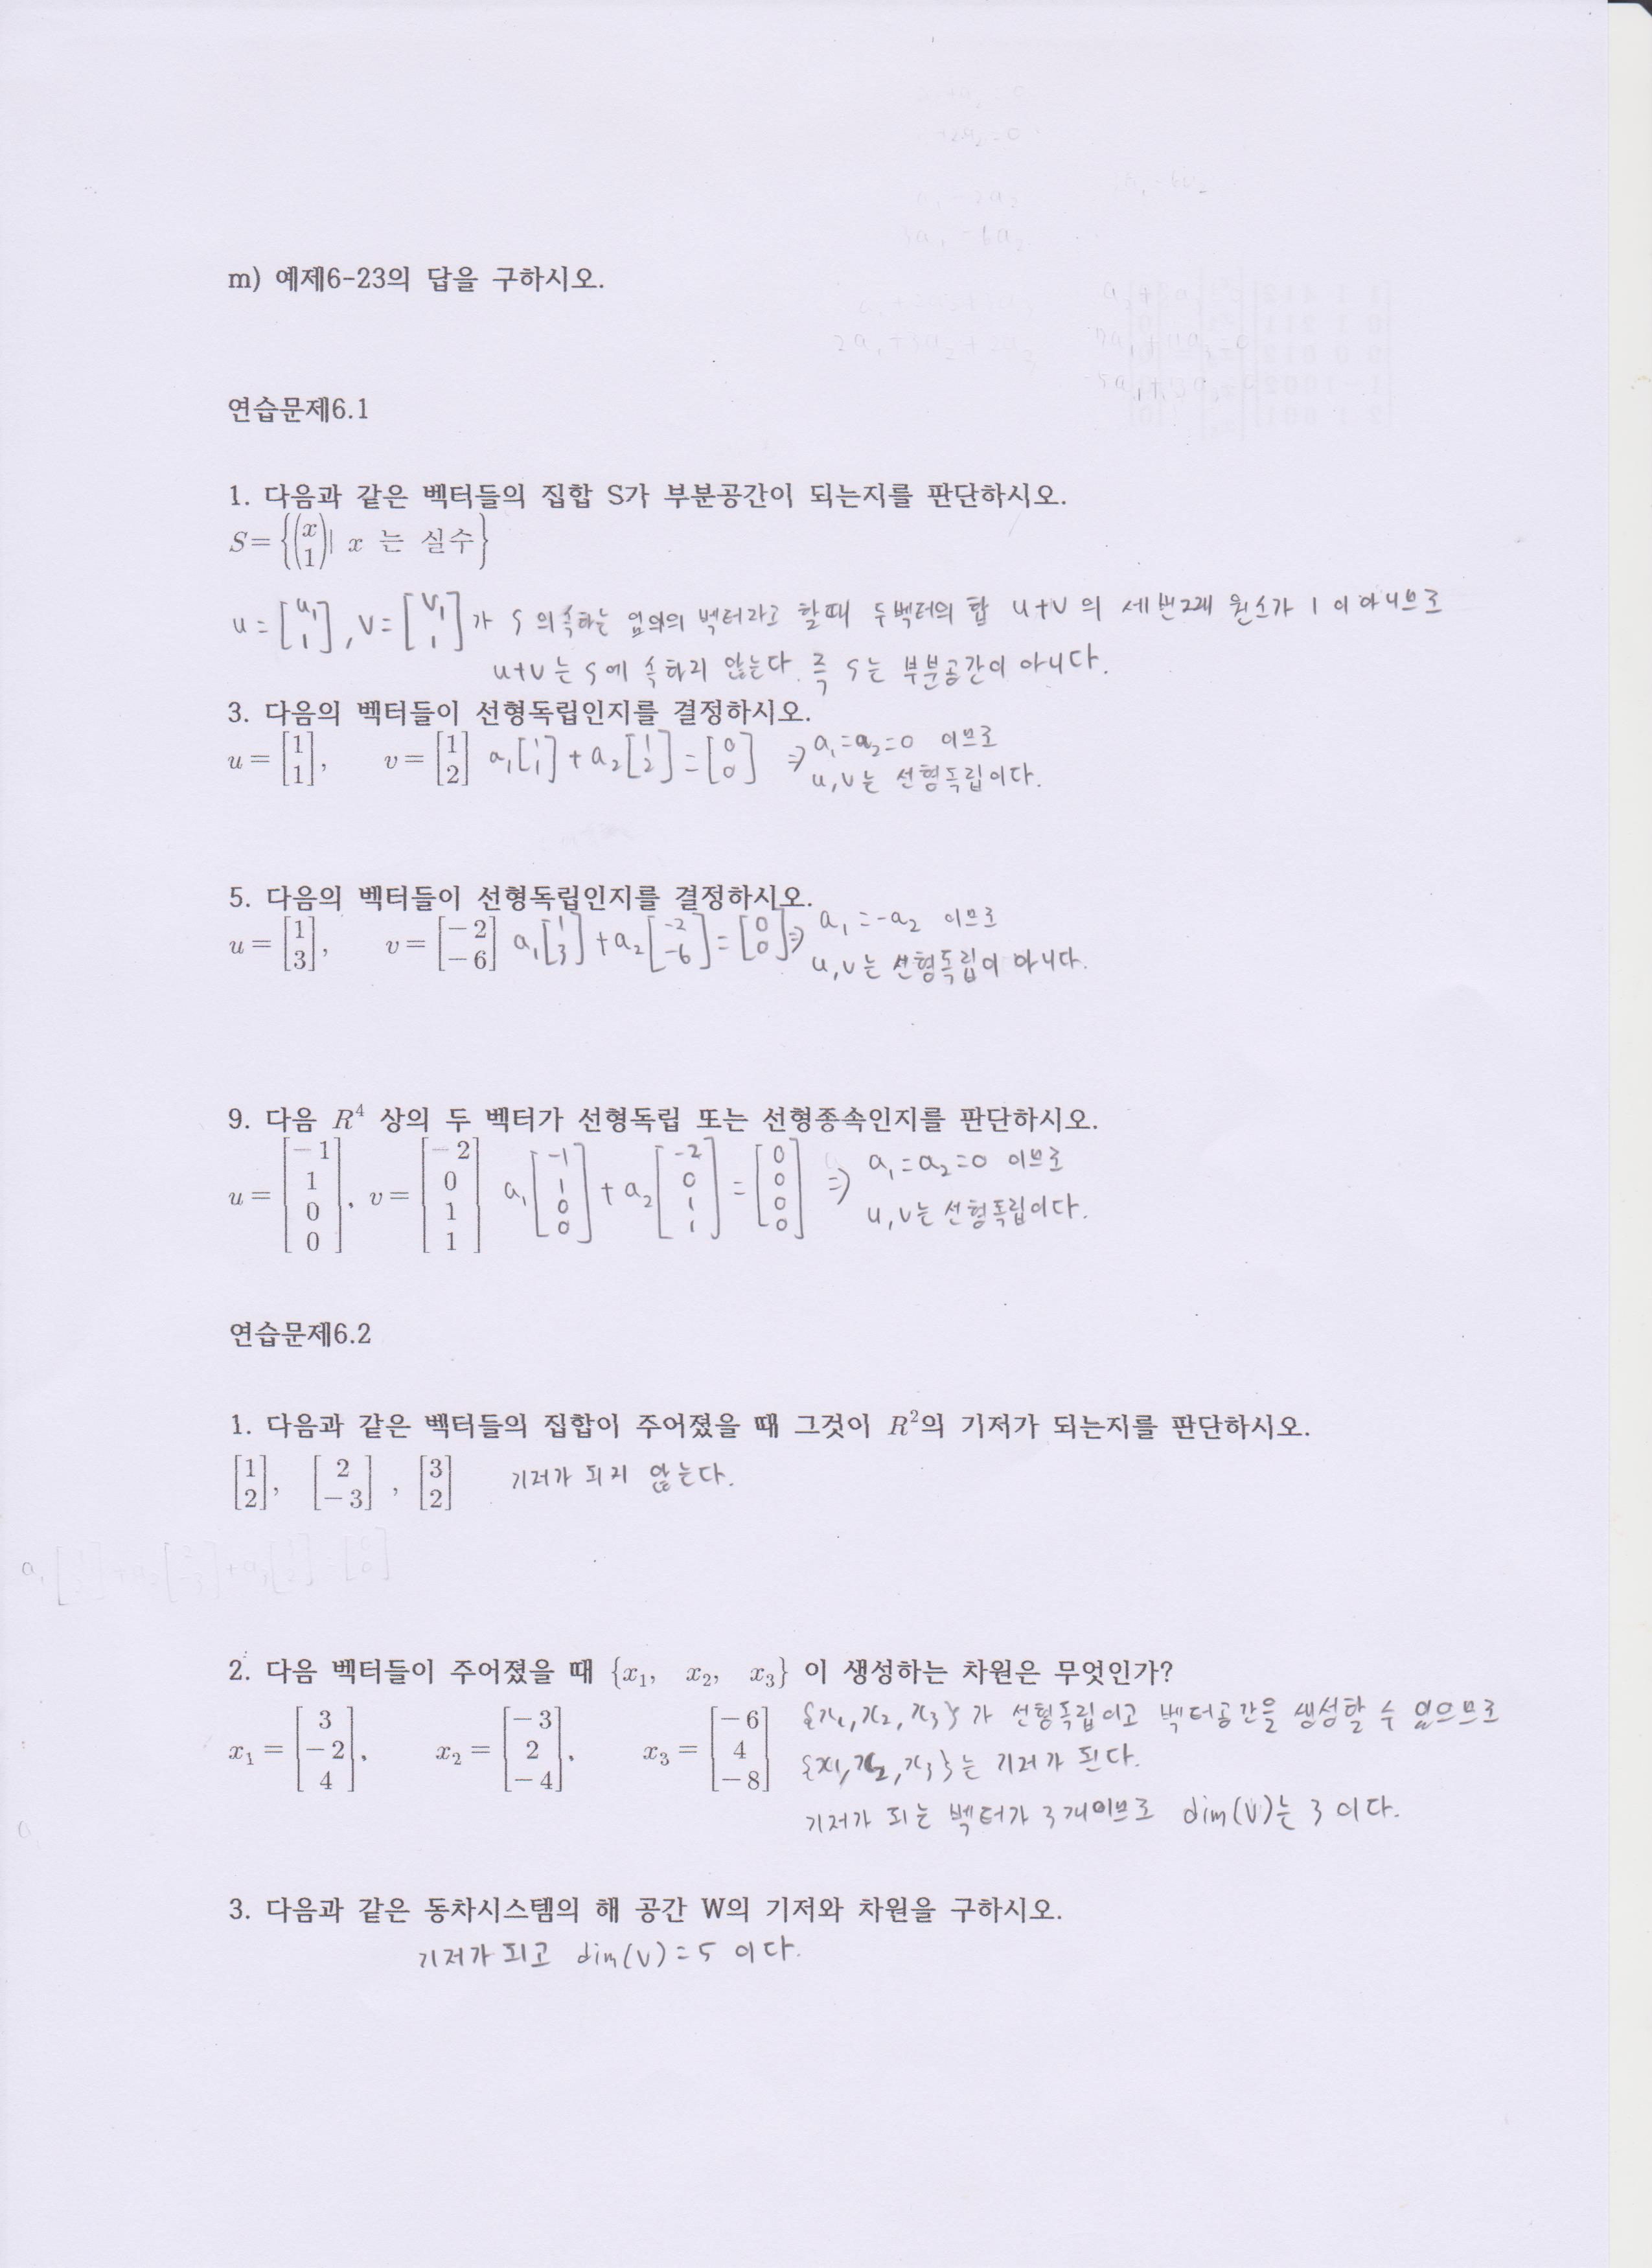 m) 예제6-23의 답을 구하시오.
연습문제6.1
1. 다음과 같은 벡터들의 집합 S가 부분공간이 되는지를 판단하시오.
S={(x 1)| x 는 실수}
u=[u₁ 1], v=[v₁ 1]가 S의속하는 임의의 벡터라고 할때 두벡터의 합 u+v의 세번2째 원소가 1이아니므로
u+v는 S에 속하지 않는다. 즉 S는 부분공간이 아니다.
3. 다음의 벡터들이 선형독립인지를 결정하시오.
u=[1 1], v=[1 2] a₁[1 1]+a₂[1 2]=[0 0] ⇒ a₁=a₂=0 이므로
u,v는 선형독립이다.
5. 다음의 벡터들이 선형독립인지를 결정하시오.
u=[1 3], v=[-2 -6] a₁[1 3]+a₂[-2 -6]=[0 0]⇒ a₁=-a₂ 이므로
u,v는 선형독립이 아니다.
9. 다음 R⁴ 상의 두 벡터가 선형독립 또는 선형종속인지를 판단하시오.
u=[-1 1 0 0], v=[-2 0 1 1] a₁[-1 1 0 0]+a₂[-2 0 1 1]=[0 0 0 0] ⇒ a₁=a₂=0 이므로
u,v는 선형독립이다.
연습문제6.2
1. 다음과 같은 벡터들의 집합이 주어졌을 때 그것이 R²의 기저가 되는지를 판단하시오.
[1 2], [2 -3], [3 2] 기저가 되지 않는다.
2. 다음 벡터들이 주어졌을 때 {x₁, x₂, x₃} 이 생성하는 차원은 무엇인가?
x₁=[3 -2 4], x₂=[-3 2 -4], x₃=[-6 4 -8] {x₁,x₂,x₃}가 선형독립이고 벡터공간을 생성할 수 있으므로
{x₁,x₂,x₃}는 기저가 된다.
기저가 되는 벡터가 3개이므로 dim(V)는 3이다.
3. 다음과 같은 동차시스템의 해 공간 W의 기저와 차원을 구하시오.
기저가 되고 dim(V)=5 이다.